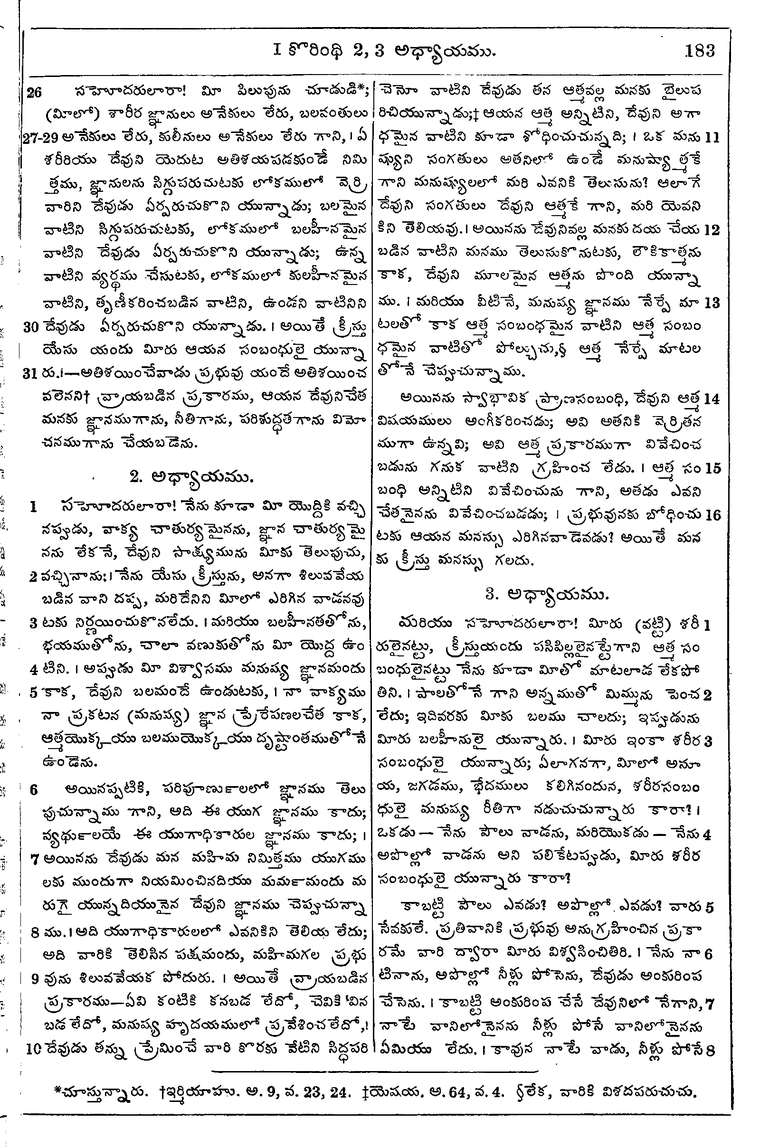 I కొరింథి 2, 3 అధ్యాయము. 183
26 సహోదరులారా! మీ పిలుపును చూడుడి*;
(మీలో) శారీర జ్ఞానులు అనేకులు లేరు, బలవంతులు
27-29 అనేకులు లేరు, కులీనులు అనేకులు లేరు గాని, । ఏ
శరీరియు దేవుని యెదుట అతిశయపడకుండే నిమి
త్తము, జ్ఞానులను సిగ్గుపరుచుటకు లోకములో వెర్రి
వారిని దేవుడు ఏర్పరుచుకొని యున్నాడు; బలమైన
వాటిని సిగ్గుపరుచుటకు, లోకములో బలహీనమైన
వాటిని దేవుడు ఏర్పరుచుకొని యున్నాడు; ఉన్న
వాటిని వ్యర్థము చేసుటకు, లోకములో కులహీనమైన
వాటిని, తృణీకరించబడిన వాటిని, ఉండని వాటినిని
30 దేవుడు ఏర్పరుచుకొని యున్నాడు. । అయితే క్రీస్తు
యేసు యందు మీరు ఆయన సంబంధులై యున్నా
31 రు.।—అతిశయించేవాడు ప్రభువు యందే అతిశయించ
వలెనని† వ్రాయబడిన ప్రకారము, ఆయన దేవునిచేత
మనకు జ్ఞానముగాను, నీతిగాను, పరిశుద్ధతగాను విమో
చనముగాను చేయబడెను.
2. అధ్యాయము.
1 సహోదరులారా! నేను కూడా మీ యొద్దికి వచ్చి
నప్పుడు, వాక్య చాతుర్యమైనను, జ్ఞాన చాతుర్యమై
నను లేకనే, దేవుని సాక్ష్యమును మీకు తెలుపుచు,
2 వచ్చినాను; । నేను యేసు క్రీస్తును, అనగా శిలువవేయ
బడిన వాని దప్ప, మరిదేనిని మీలో ఎరిగిన వాడనవు
3 టకు నిర్ణయించుకొనలేదు. । మరియు బలహీనతతోను,
భయముతోను, చాలా వణుకుతోను మీ యొద్ద ఉం
4 టిని. । అప్పుడు మీ విశ్వాసము మనుష్య జ్ఞానమందు
5 కాక, దేవుని బలమందే ఉండుటకు, । నా వాక్యము
నా ప్రకటన (మనుష్య) జ్ఞాన ప్రేరేపణలచేత కాక,
ఆత్మయొక్కయు బలముయొక్కయు దృష్టాంతముతోనే
ఉండెను.
6 అయినప్పటికి, పరిపూర్ణులలో జ్ఞానము తెలు
పుచున్నాము గాని, అది ఈ యుగ జ్ఞానము కాదు;
వ్యర్థులయే ఈ యుగాధికారుల జ్ఞానము కాదు; ।
7 అయినను దేవుడు మన మహిమ నిమిత్తము యుగము
లకు ముందుగా నియమించినదియు మర్మమందు మ
రుగై యున్నదియునైన దేవుని జ్ఞానము చెప్పుచున్నా
8 ము. । అది యుగాధికారులలో ఎవనికిని తెలియ లేదు;
అది వారికి తెలిసిన పక్షమందు, మహిమగల ప్రభు
9 వును శిలువవేయక పోదురు. । అయితే వ్రాయబడిన
ప్రకారము—ఏవి కంటికి కనబడ లేదో, చెవికి విన
బడ లేదో, మనుష్య హృదయములో ప్రవేశించ లేదో,।
10 దేవుడు తన్ను ప్రేమించే వారి కొరకు వేటిని సిద్ధపరి
చెనో వాటిని దేవుడు తన ఆత్మవల్ల మనకు బైలుప
రిచియున్నాడు;‡ ఆయన ఆత్మ అన్నిటిని, దేవుని అగా
ధమైన వాటిని కూడా శోధించుచున్నది; । ఒక మను 11
ష్యుని సంగతులు అతనిలో ఉండే మనుష్యాత్మకే
గాని మనుష్యులలో మరి ఎవనికి తెలుసును? ఆలాగే
దేవుని సంగతులు దేవుని ఆత్మకే గాని, మరి యెవని
కిని తెలియవు. । అయినను దేవునివల్ల మనకుదయ చేయ 12
బడిన వాటిని మనము తెలుసుకొనుటకు, లౌకికాత్మను
కాక, దేవుని మూలమైన ఆత్మను పొంది యున్నా
ము. । మరియు వీటినే, మనుష్య జ్ఞానము నేర్పే మా 13
టలతో కాక ఆత్మ సంబంధమైన వాటిని ఆత్మ సంబం
ధమైన వాటితో పోల్చుచు,§ ఆత్మ నేర్పే మాటల
తోనే చెప్పుచున్నాము.
అయినను స్వాభావిక ప్రాణసంబంధి, దేవుని ఆత్మ 14
విషయములు అంగీకరించడు; అవి అతనికి వెర్రితన
ముగా ఉన్నవి; అవి ఆత్మ ప్రకారముగా వివేచించ
బడును గనుక వాటిని గ్రహించ లేడు. । ఆత్మ సం 15
బంధి అన్నిటిని వివేచించును గాని, అతడు ఎవని
చేతనైనను వివేచించబడడు; । ప్రభువునకు బోధించు 16
టకు ఆయన మనస్సు ఎరిగినవాడెవడు? అయితే మన
కు క్రీస్తు మనస్సు గలదు.
3. అధ్యాయము.
మరియు సహోదరులారా! మీరు (వట్టి) శరీ 1
రులైనట్టు, క్రీస్తుయందు పసిపిల్లలైనట్టేగాని ఆత్మ సం
బంధులైనట్టు నేను కూడా మీతో మాటలాడ లేకపో
తిని. । పాలతోనే గాని అన్నముతో మిమ్మును పెంచ 2
లేదు; ఇదివరకు మీకు బలము చాలదు; ఇప్పుడును
మీరు బలహీనులై యున్నారు. । మీరు ఇంకా శరీర 3
సంబంధులై యున్నారు; ఏలాగనగా, మీలో అసూ
య, జగడము, భేదములు కలిగినందున, శరీరసంబం
ధులై మనుష్య రీతిగా నడుచుచున్నారు కారా? ।
ఒకడు — నేను పౌలు వాడను, మరియొకడు — నేను 4
అపొల్లో వాడను అని పలికేటప్పుడు, మీరు శరీర
సంబంధులై యున్నారు కారా?
కాబట్టి పౌలు ఎవడు? అపొల్లో ఎవడు? వారు 5
సేవకులే. ప్రతివానికి ప్రభువు అనుగ్రహించిన ప్రకా
రమే వారి ద్వారా మీరు విశ్వసించితిరి. । నేను నా 6
టినాను, అపొల్లో నీళ్లు పోసెను, దేవుడు అంకురింప
చేసెను. । కాబట్టి అంకురింప చేసే దేవునిలోనేగాని, 7
నాటే వానిలోనైనను నీళ్లు పోసే వానిలోనైనను
ఏమియు లేదు. । కావున నాటే వాడు, నీళ్లు పోసే 8
*చూస్తున్నారు. †ఇర్మియాహు. అ. 9, వ. 23, 24. ‡యెషయ. అ. 64, వ. 4. §లేక, వారికి విశదపరుచుచు.